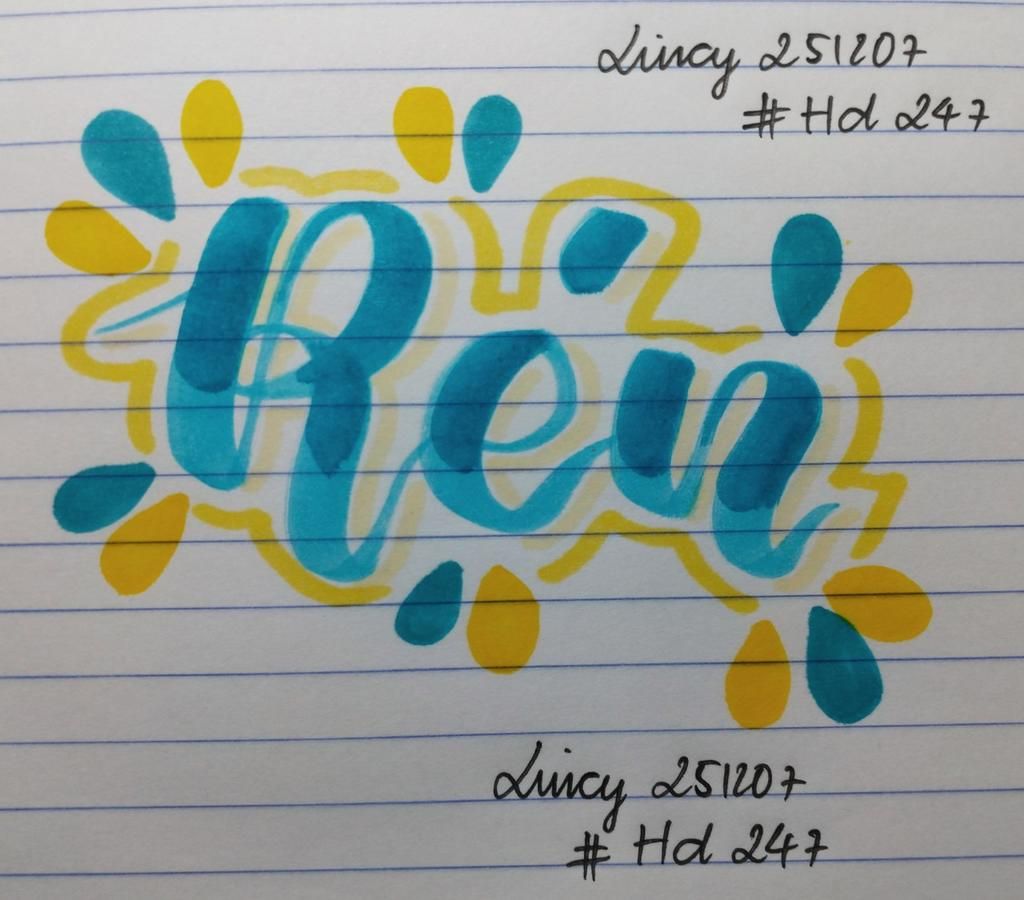 Lincy 251207
# Hd 247
Rén
Lincy 251207
# Hd 247